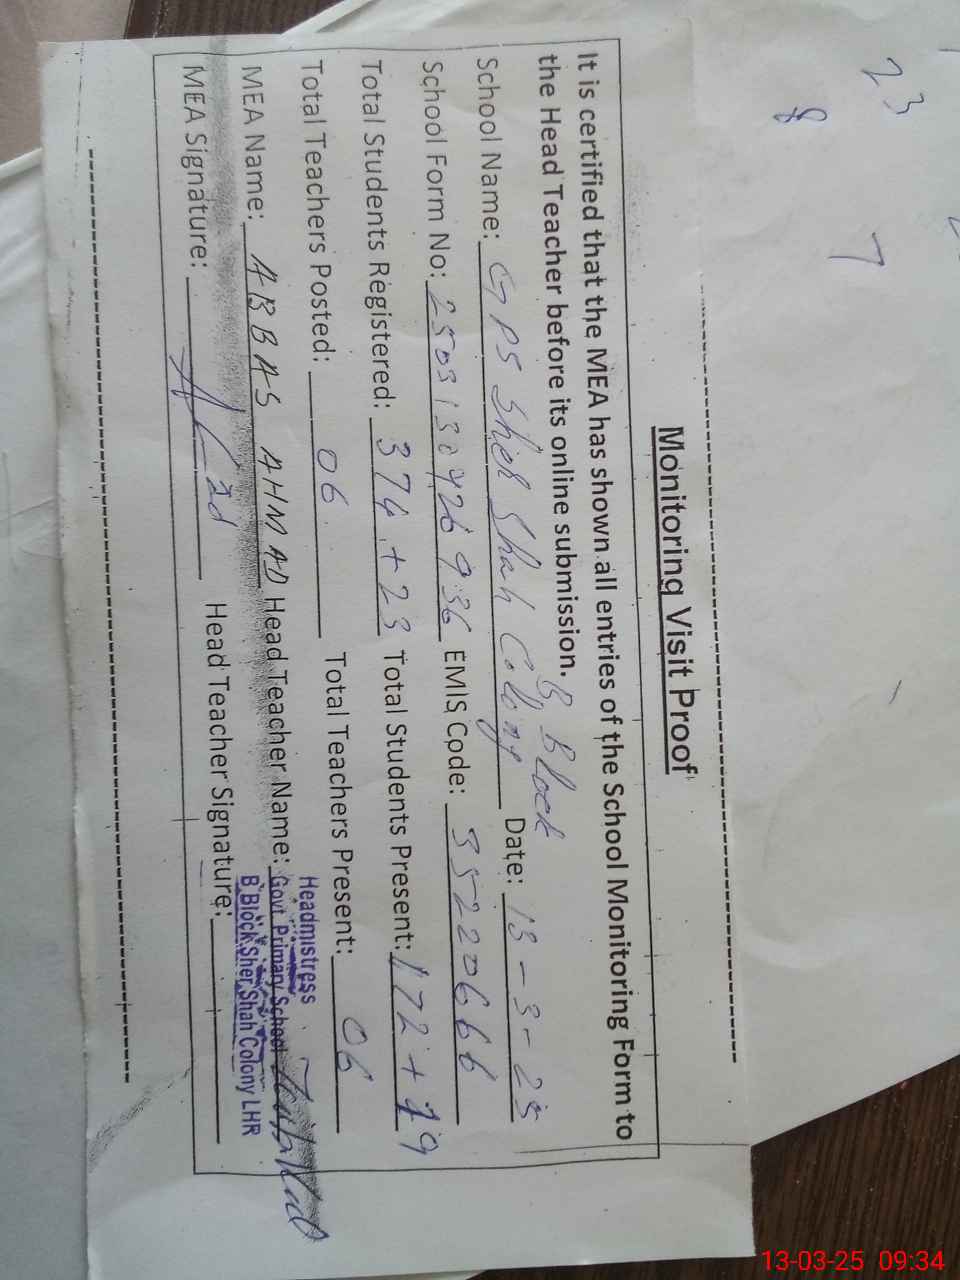 23
8
7
Monitoring Visit Proof
It is certified that the MEA has shown all entries of the School Monitoring Form to
the Head Teacher before its online submission.
B, Block
School Name: GPS Sher Shah Colony Date: 13-3-25
School Form No: 250313 0426936 EMIS Code: 35220666
Total Students Registered: 374 + 23 Total Students Present: 172 + 19
Total Teachers Posted: 06 Total Teachers Present: 06
MEA Name: ABBAS AHMAD Head Teacher Name:
Headmistress
Govt Primary School
B Block Sher Shah Colony LHR
MEA Signature: Head Teacher Signature:
13-03-25 09:34